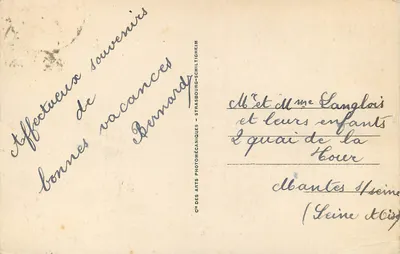 Affectueux souvenirs
de
bonnes vacances
Bernard
Cie DES ARTS PHOTOMÉCANIQUES - STRASBOURG-SCHILTIGHEIM
Mr et Mme Langlois
et leurs enfants
2 quai de la
Tour
Mantes s/seine
(Seine &Oise